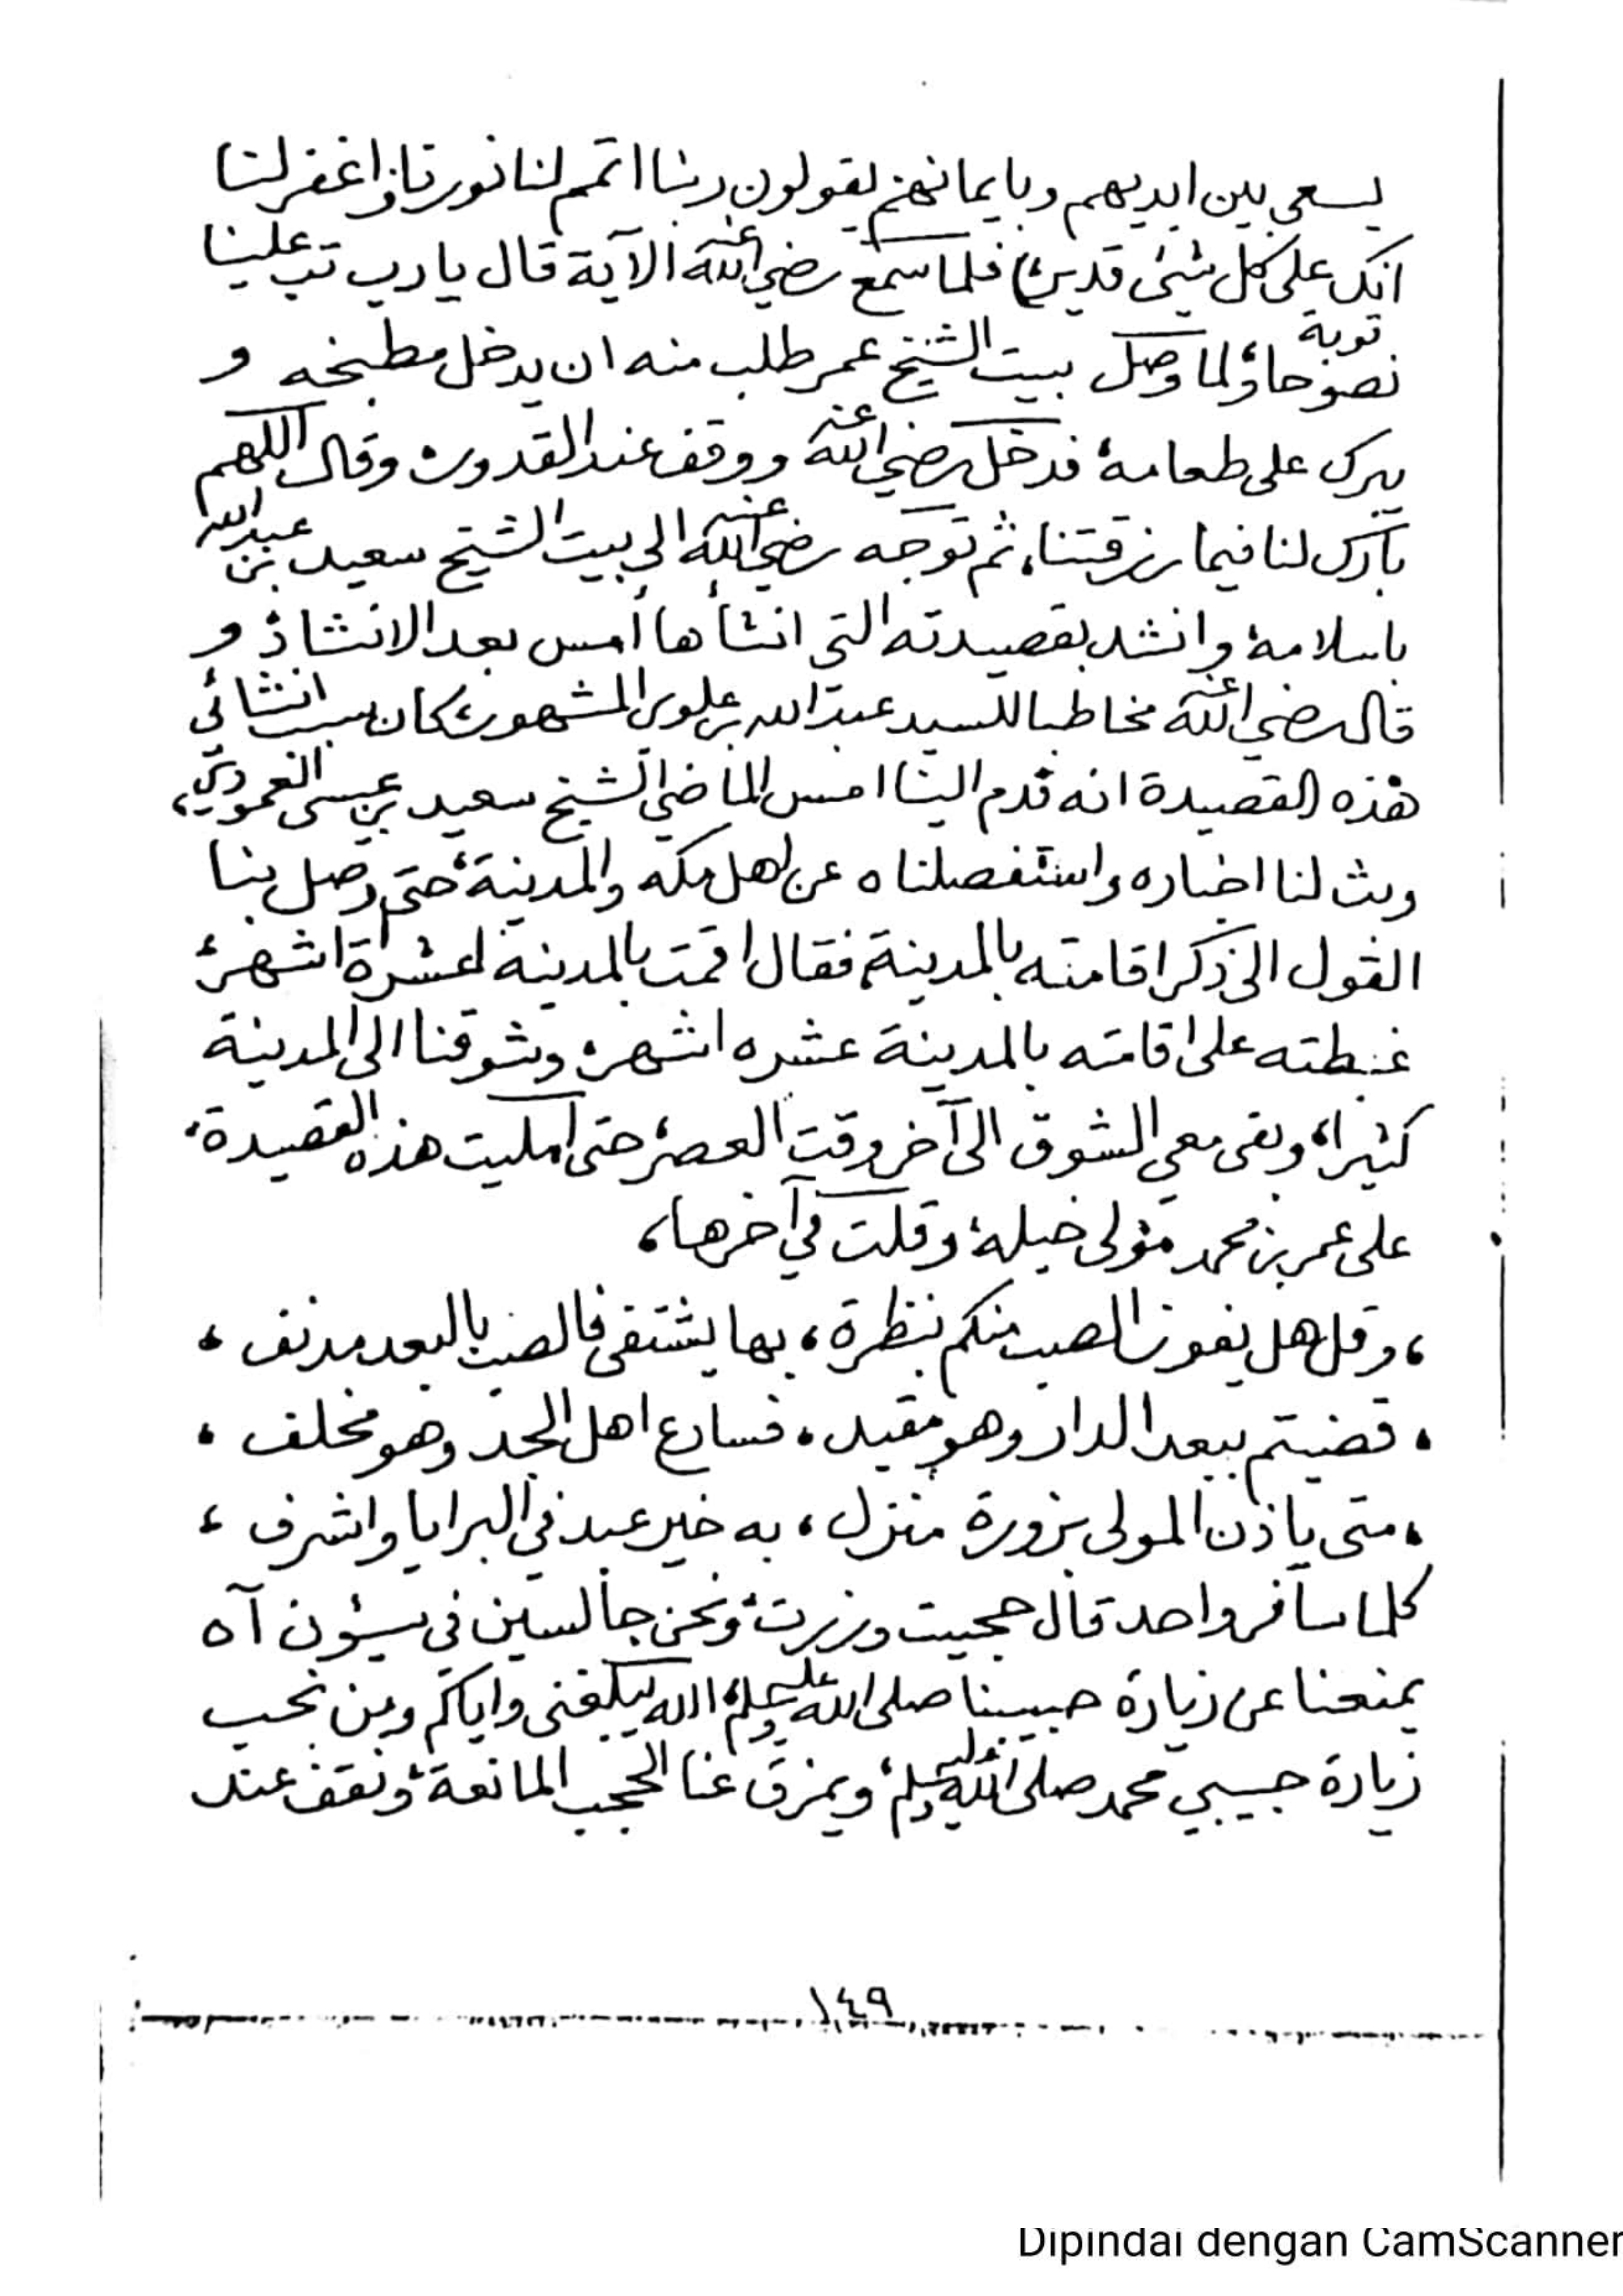 يسعى بين ايديهم وبايمانهم يقولون ربنا اتمم لنا نورنا واغفر لنا
انك على كل شئ قدير) فلما سمع رضي الله عنه الآية قال يا رب تب علينا
توبة نصوحا، ولما وصل بيت الشيخ عمر طلب منه ان يدخل مطبخه و
يبرك على طعامه، فدخل رضي الله عنه ووقف عند القدور، وقال اللهم
بارك لنا فيما رزقتنا، ثم توجه رضي الله عنه الى بيت الشيخ سعيد بن عبدالله
باسلامة، وانشد بقصيدته التي انشأها أمس بعد الانشاد، و
قال رضي الله عنه مخاطبا للسيد عبدالله بن علوي المشهور، كان سبب انشائي
هذه القصيدة انه قدم الينا امس الماضي الشيخ سعيد بن عيسى العمودي،
وبث لنا اخباره واستفصلناه عن اهل مكه والمدينة، حتى وصل بنا
القول الى ذكر اقامته بالمدينة، فقال اقمت بالمدينة عشرة اشهر،
غبطته على اقامته بالمدينة عشره اشهر، وشوقنا الى المدينة
كثيرا، وبقى معي الشوق الى آخر وقت العصر، حتى امليت هذه القصيدة،
على عمر بن محمد مولى خيلة، وقلت في آخرها،
، وقل هل يفوز الصب منكم بنظرة ، بها يشتفى فالصب بالبعد مدنف ،
، قضيتم ببعد الدار وهو مقيد ، فسارع اهل الجد وهو مخلف ،
، متى يأذن المولى بزورة منزل ، به خير عبد في البرايا واشرف ،
كلما سافر واحد قال حجيت وزرت، ونحن جالسين في سيؤن آه
يمنعنا عن زيارة حبيبنا صلى الله عليه وسلم، الله يبلغني واياكم ومن نحب
زيارة حبيبي محمد صلى الله عليه وسلم، ويمزق عنا الحجب المانعة، ونقف عند
١٤٩
Dipindai dengan CamScanner